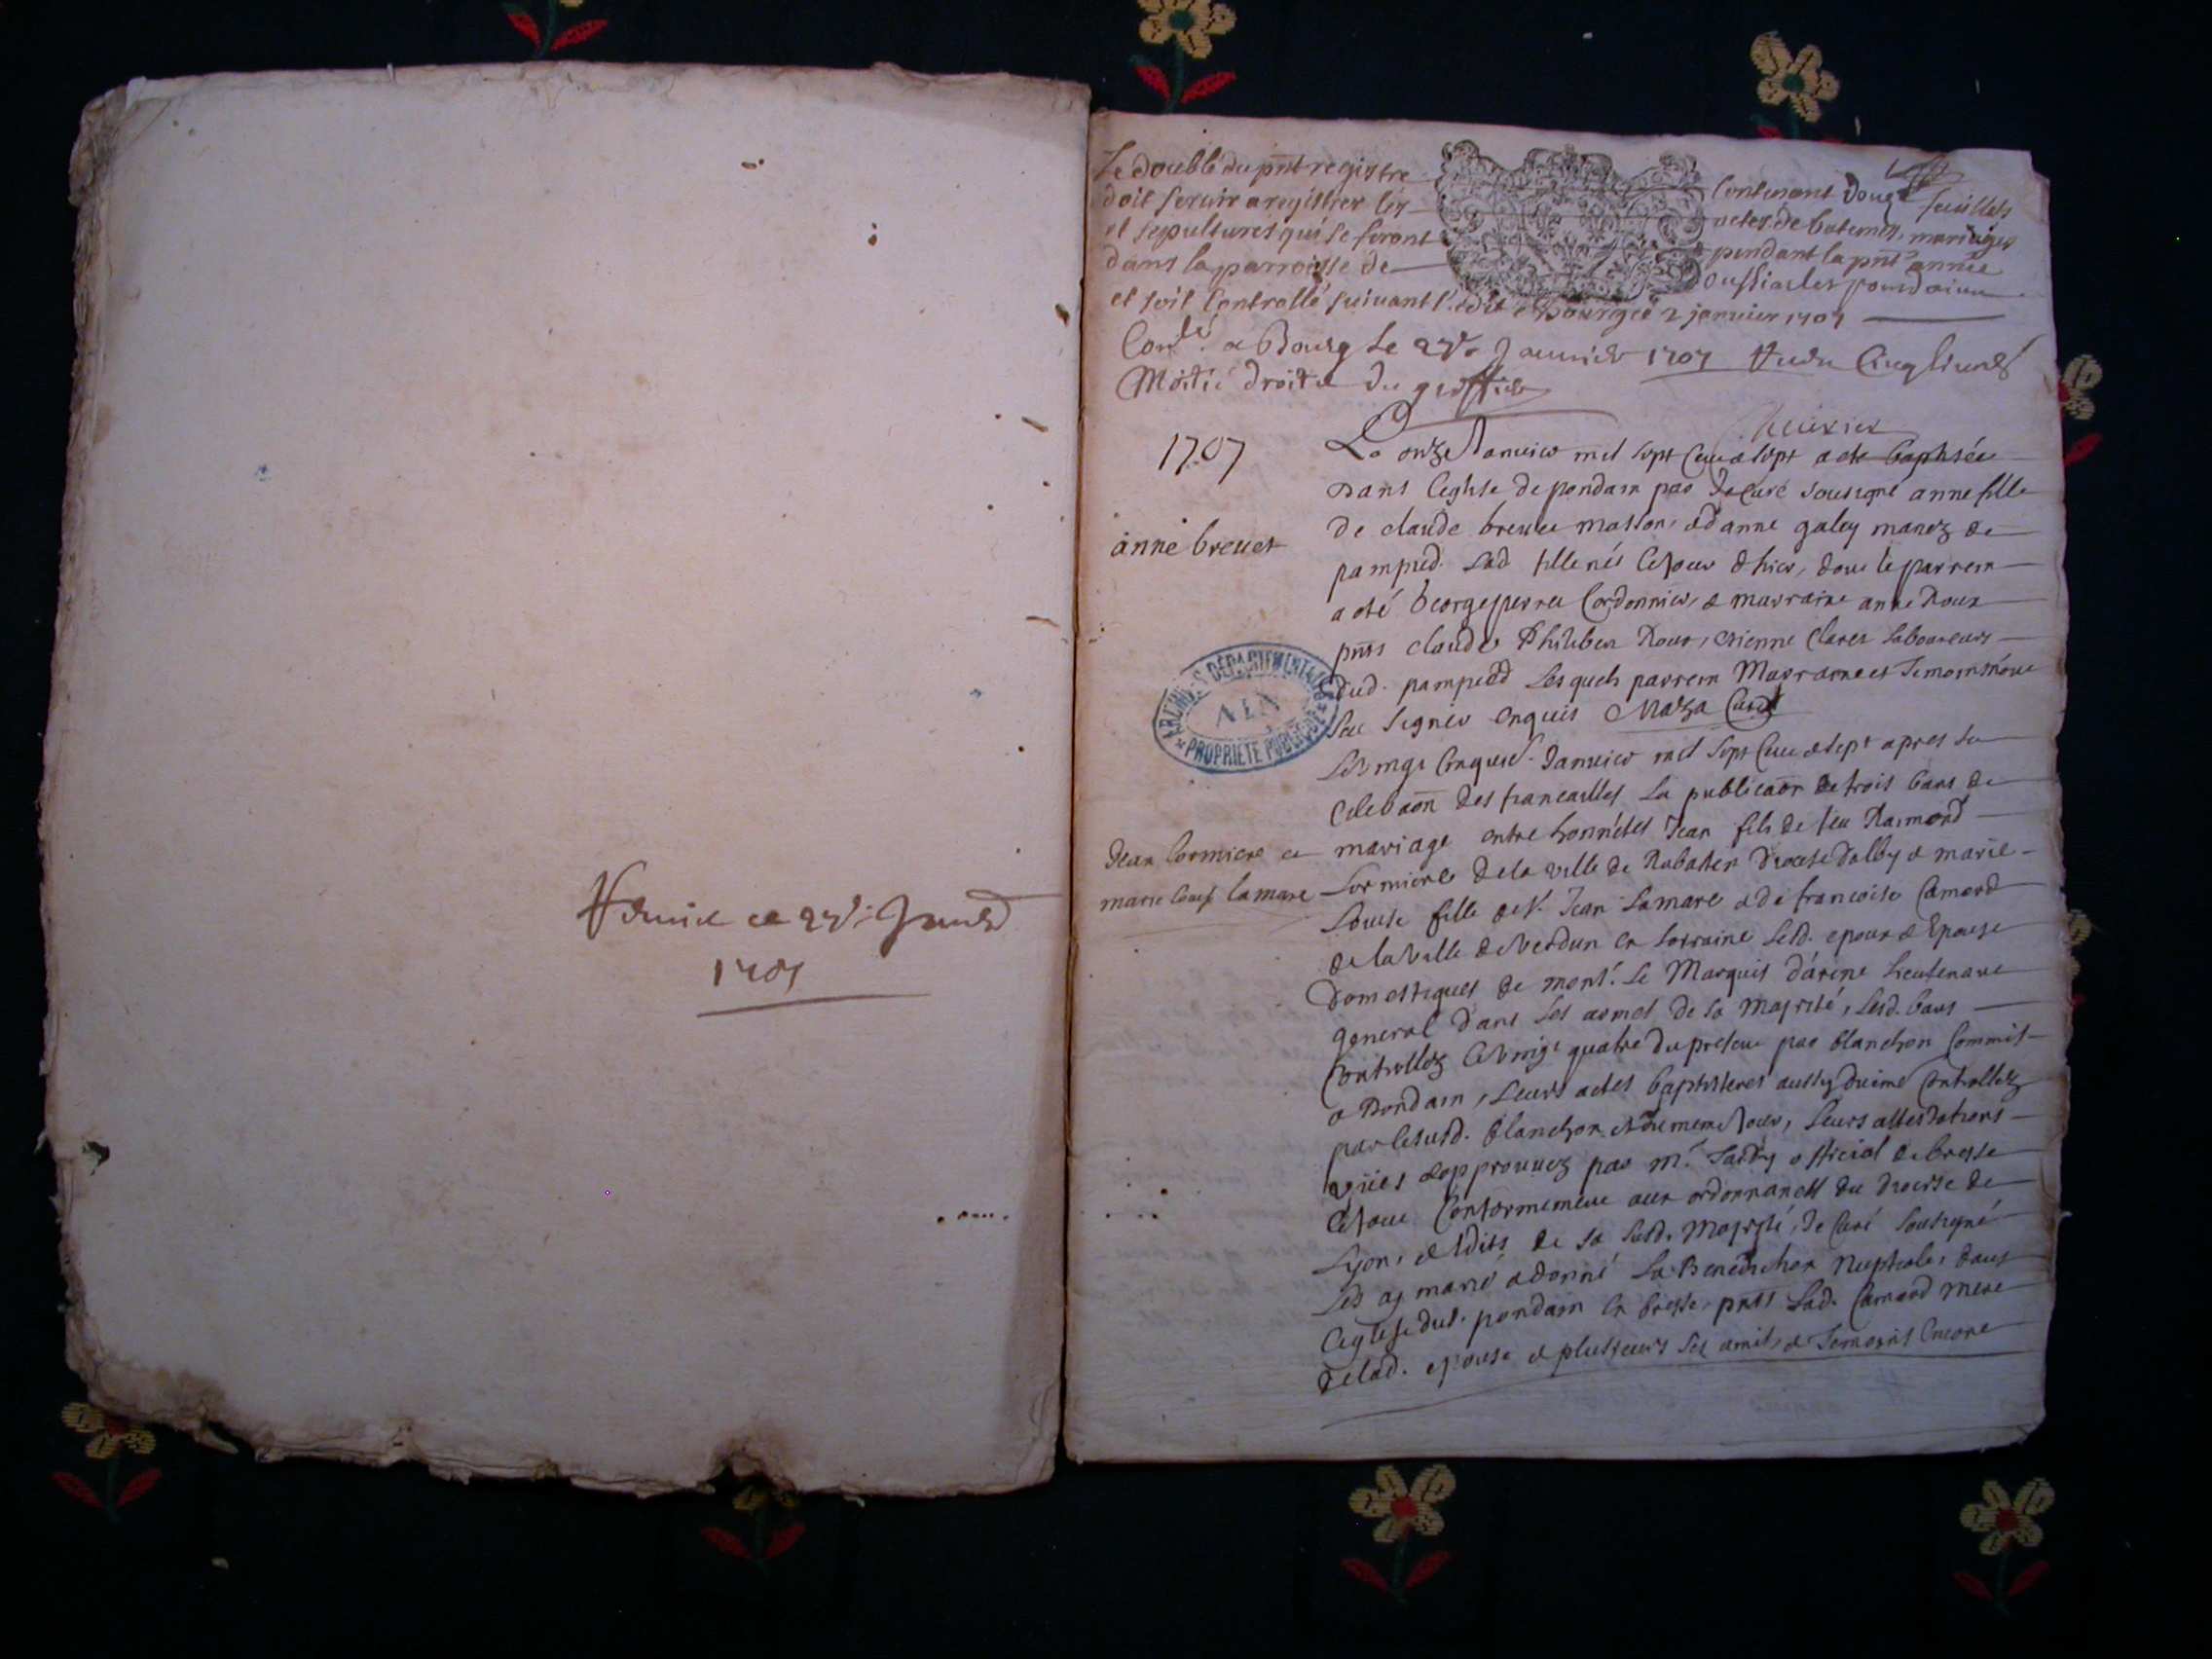 ce 27e
1707
Le double du pnt registre contenant douze feuillets
doit servir a registrer les actes de batemes, mariages
et sepultures qui se feront pendant la pnte année
dans la parroisse de pondain
et soit controllé suivant l'edit a Bourg ce 2 janvier 1707
Conlé a Bourg le 27e Janvier 1707 cinq livres
Moitié droits du greffier
1707
Le onze Janvier mil sept cent et sept a ete baptisée
dans l'eglise de pondain par Je curé sousigné anne fille
anne brevet
de claude brevet masson, et d'anne galey mariez de
pampied. lad fille née le jour d'hier, dont le parrein
a été George perret Cordonnier, et marraine anne Roux
pnts claude Philibert Roux, etienne claret laboureurs
ARCHIVES DÉPARTEMENTALES
AIN
* PROPRIÉTÉ PUBLIQUE *
dud. pampied lesquels parrein marraine et temoins n'ont
sceu signer enquis Curé
Le vingt cinquie. Janvier mil sept cent et sept apres la
celebaon des fiancailles la publicaon de trois bans de
Jean lormiere et
mariage entre honnetes Jean fils de feu Raimond
marie louise lamare
Lormiere de la ville de Rabasten diocese d'alby et marie
Louise fille de Sr. Jean Lamare et de francoise Camard
de la ville de Verdun en Lorraine lesd. epoux et Epouse
domestiques de monsr. le Marquis d'arene lieutenant
general dans les armes de sa Majesté, lesd. bans
controllez le vingt quatre du present par blanchon Commis
a Pondain, leurs actes baptisteres aussy controllez
par lesusd. blanchon et du meme jour, leurs attestations
vües et approuvez par mr. official de bresse
ce jour conformement aux ordonnances du diocese de
Lyon, et edits de sa susd. Majesté, Je Curé sousigné
les ay marié et donné la Benediction Nuptiale, dans
l'eglise dud. pondain en bresse, pnts lad. Camard mere
de lad. epouse et plusieurs ses amis, et temoins encore